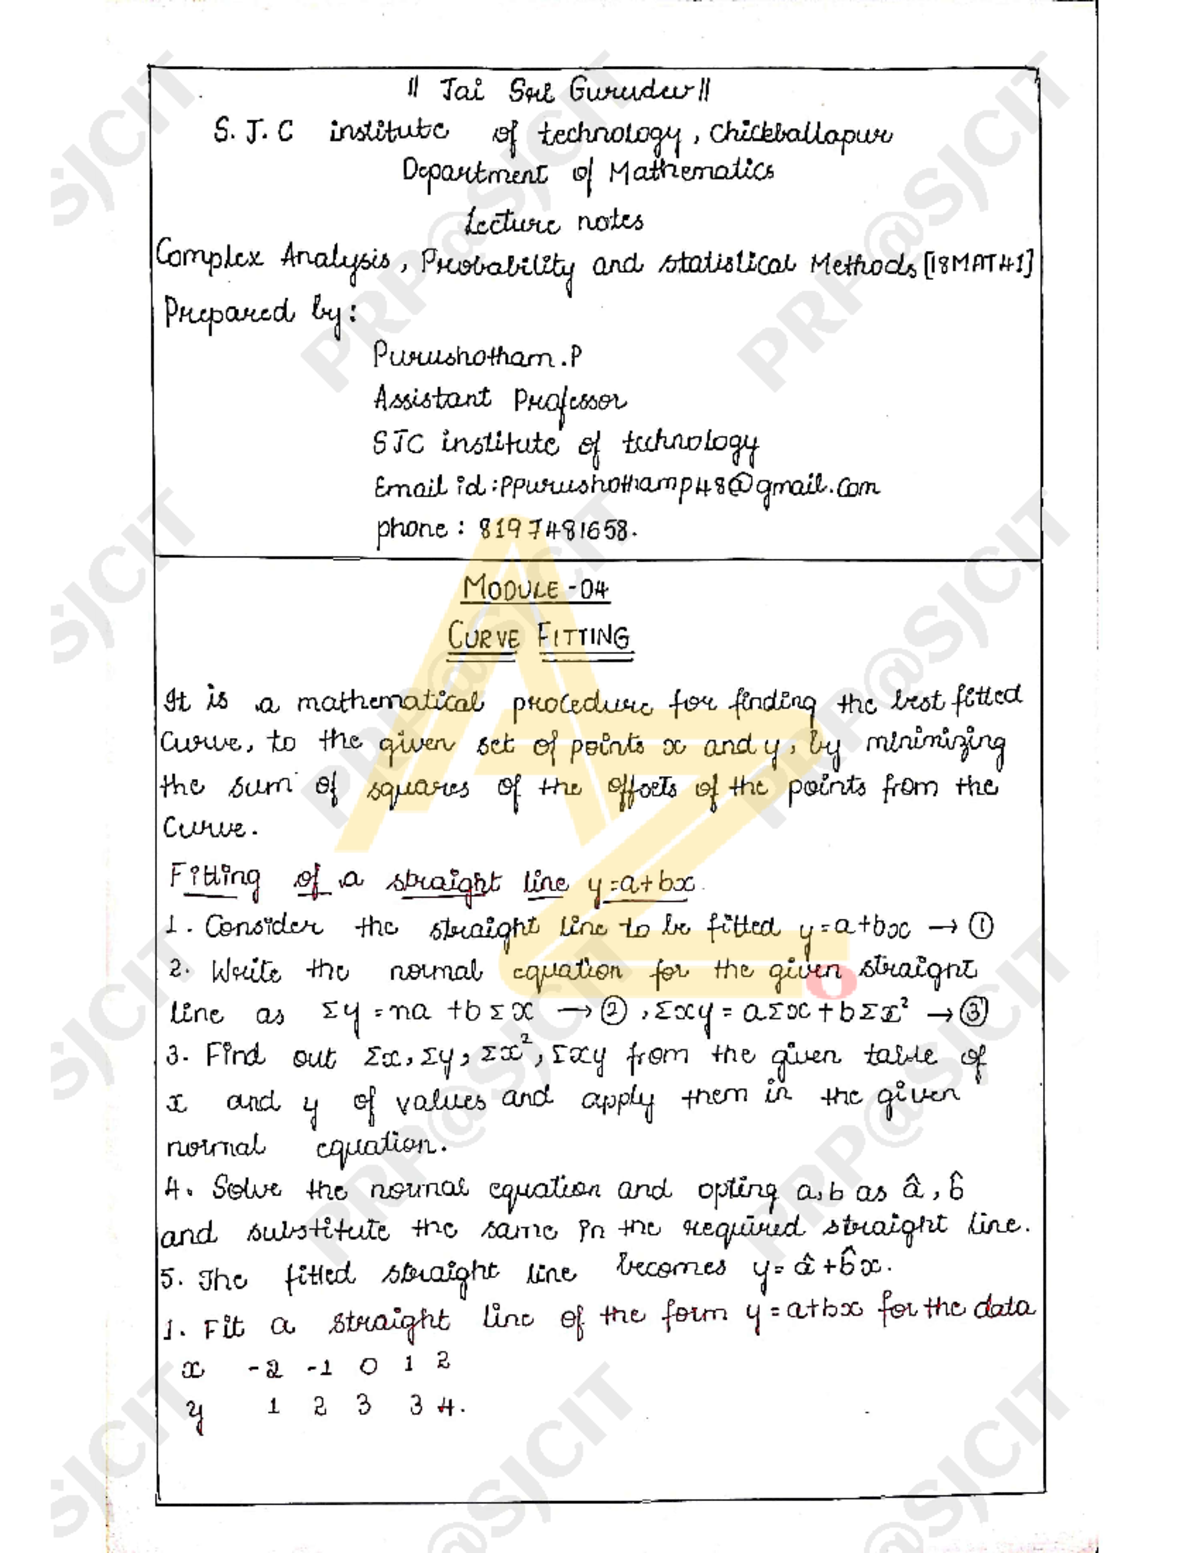 || Jai Sri Gurudev ||
S. J. C institute of technology, Chickballapur
Department of Mathematics
Lecture notes
Complex Analysis, Probability and statistical Methods [18MAT41]
Prepared by:
Purushotham.P
Assistant Professor
SJC institute of technology
Email id:ppurushothamp48@gmail.com
phone: 8197481658.
MODULE-04
CURVE FITTING
It is a mathematical procedure for finding the best fitted
curve, to the given set of points x and y, by minimizing
the sum of squares of the offsets of the points from the
curve.
Fitting of a straight line y=a+bx.
1. Consider the straight line to be fitted y=a+bx → ①
2. Write the normal equation for the given straight
line as Σy = na + bΣx → ②, Σxy = aΣx + bΣx² → ③
3. Find out Σx, Σy, Σx², Σxy from the given table of
x and y of values and apply them in the given
normal equation.
4. Solve the normal equation and opting a, b as â, b̂
and substitute the same in the required straight line.
5. The fitted straight line becomes y = â + b̂x.
1. Fit a straight line of the form y = a+bx for the data
x -2 -1 0 1 2
y 1 2 3 3 4.
PRP@SJCIT
AZ